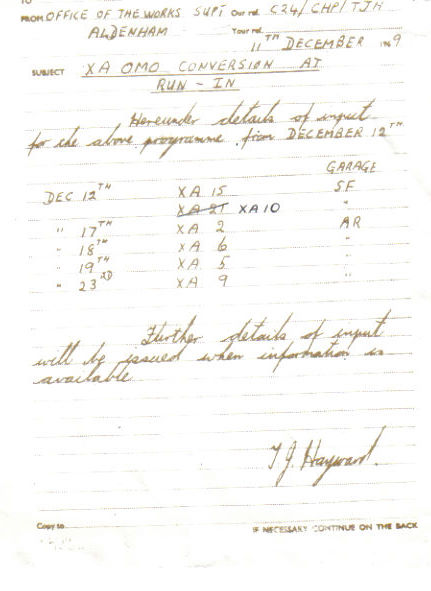 TO
FROM OFFICE OF THE WORKS SUPT Our ref. C24/CHP/TJH
ALDENHAM Your ref.
11TH DECEMBER 1969
SUBJECT XA OMO CONVERSION AT
RUN-IN
Hereunder details of input
for the above programme from DECEMBER 12TH
GARAGE
DEC 12TH XA 15 SF
XA 21 XA 10 "
" 17TH XA 2 AR
" 18TH XA 6 "
" 19TH XA 5 "
" 23RD XA 9 "
Further details of input
will be issued when information is
available
T J. Hayward.
Copy to
IF NECESSARY CONTINUE ON THE BACK